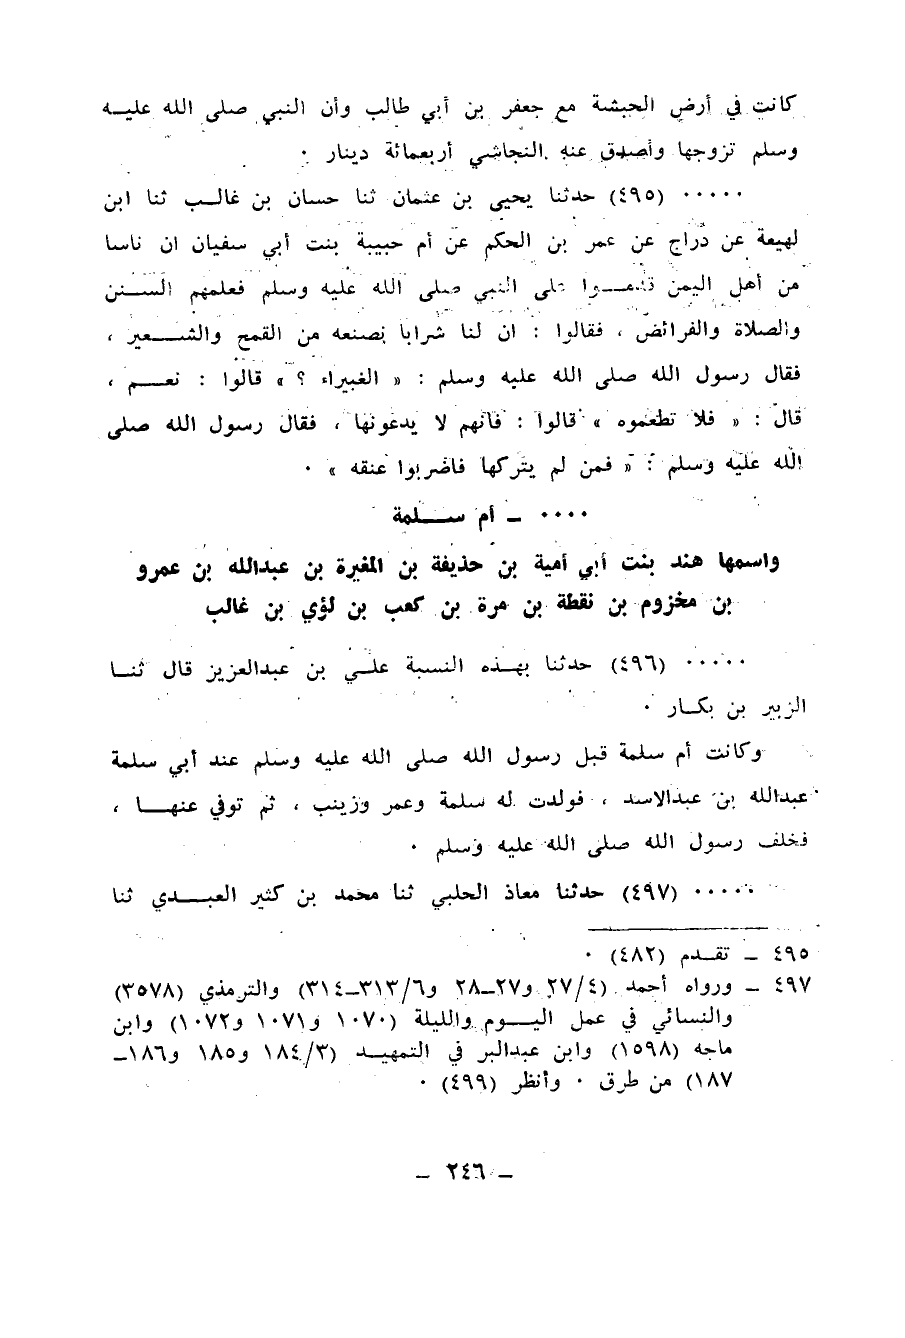 كانت في أرض الحبشة مع جعفر بن أبي طالب وأن النبي صلى الله عليه
وسلم تزوجها وأصدق عنه النجاشي أربعمائة دينار ٠
٠٠٠٠٠ (٤٩٥) حدثنا يحيى بن عثمان ثنا حسان بن غالب ثنا ابن
لهيعة عن دراج عن عمر بن الحكم عن أم حبيبة بنت أبي سفيان ان ناسا
من أهل اليمن قدموا على النبي صلى الله عليه وسلم فعلمهم السنن
والصلاة والفرائض ، فقالوا : ان لنا شرابا نصنعه من القمح والشعير ،
فقال رسول الله صلى الله عليه وسلم : « الغبيراء ؟ » قالوا : نعم ،
قال : « فلا تطعموه » قالوا : فانهم لا يدعونها ، فقال رسول الله صلى
الله عليه وسلم : « فمن لم يتركها فاضربوا عنقه » ٠
٠٠٠٠ ـ أم سلمة
واسمها هند بنت أبي أمية بن حذيفة بن المغيرة بن عبدالله بن عمرو
بن مخزوم بن نقطة بن مرة بن كعب بن لؤي بن غالب
٠٠٠٠٠ (٤٩٦) حدثنا بهذه النسبة علي بن عبدالعزيز قال ثنا
الزبير بن بكار ٠
وكانت أم سلمة قبل رسول الله صلى الله عليه وسلم عند أبي سلمة
عبدالله بن عبدالاسد ، فولدت له سلمة وعمر وزينب ، ثم توفي عنها ،
فخلف رسول الله صلى الله عليه وسلم ٠
٠٠٠٠٠ (٤٩٧) حدثنا معاذ الحلبي ثنا محمد بن كثير العبدي ثنا
٤٩٥ ـ تقدم (٤٨٢) ٠
٤٩٧ ـ ورواه أحمد (٢٧/٤ و٢٧ــ٢٨ و٣١٣/٦ــ٣١٤) والترمذي (٣٥٧٨)
والنسائي في عمل اليوم والليلة (١٠٧٠ و١٠٧١ و١٠٧٢) وابن
ماجه (١٥٩٨) وابن عبدالبر في التمهيد (١٨٤/٣ و١٨٥ و١٨٦ــ
١٨٧) من طرق ٠ وأنظر (٤٩٩) ٠
ـ ٢٤٦ ـ